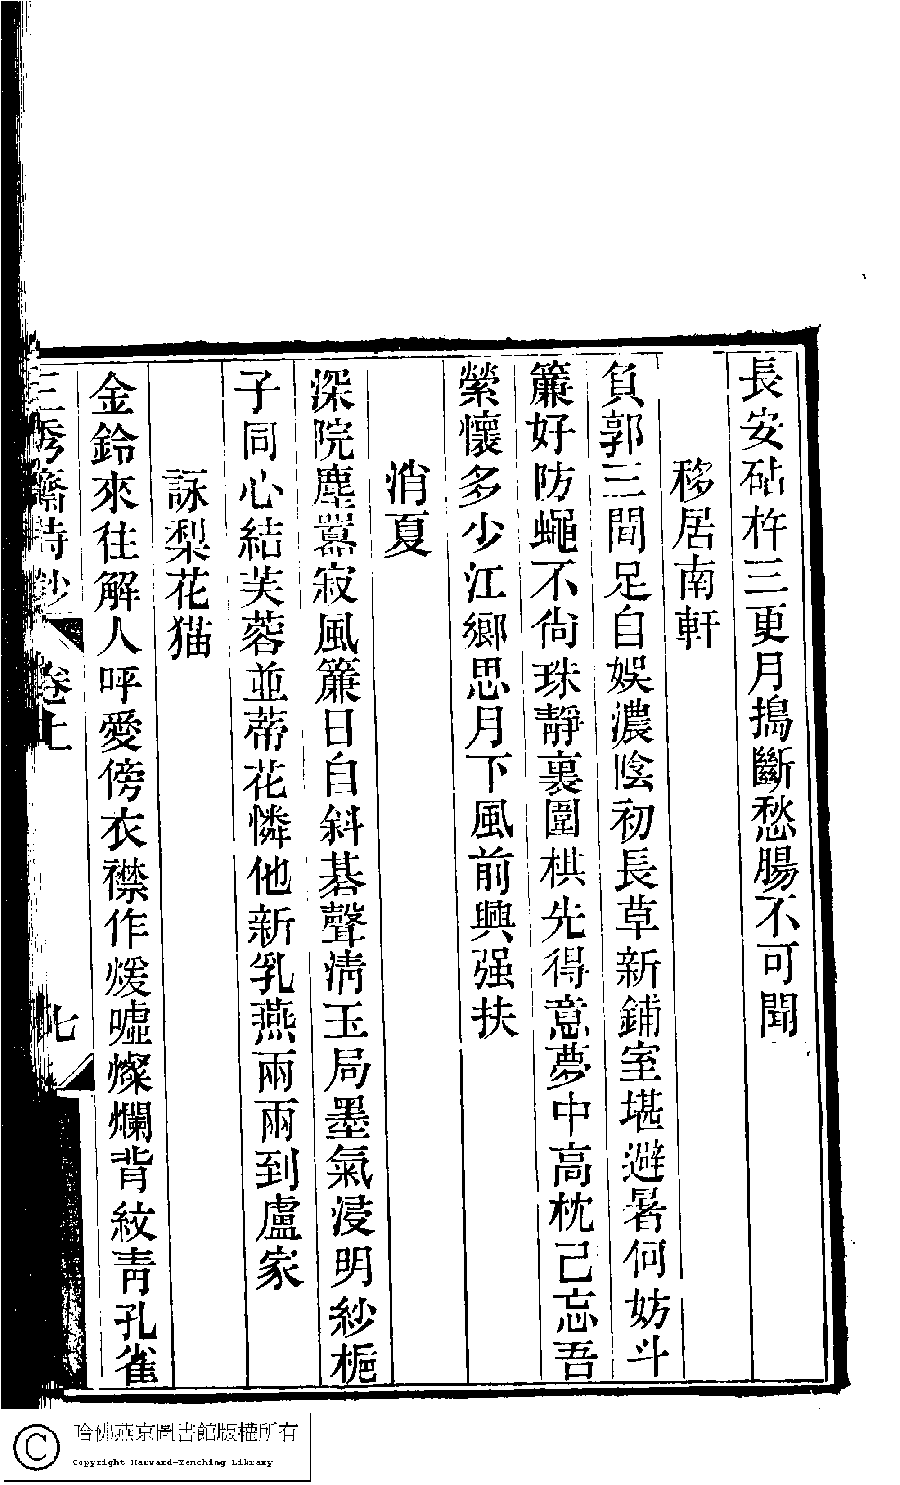 長安砧杵三更月搗斷愁腸不可聞
移居南軒
負郭三間足自娛濃陰初長草新鋪室堪避暑何妨斗
簾好防蠅不尙珠靜裏圍棋先得意夢中高枕已忘吾
縈懷多少江鄉思月下風前興强扶
消夏
深院塵囂寂風簾日自斜碁聲淸玉局墨氣浸明紗梔
子同心結芙蓉並蒂花憐他新乳燕兩兩到盧家
詠梨花猫
金鈴來往解人呼愛傍衣襟作煖噓燦爛背紋靑孔雀
三秀齋詩鈔 卷上 七
哈佛燕京圖書館版權所有
Copyright Harvard-Yenching Library